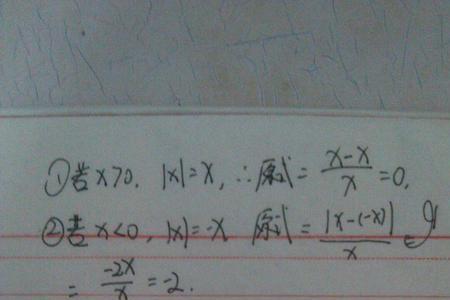 ①若x>0, |x|=x, ∴原式=\frac{x-x}{x}=0,
②若x<0, |x|=-x 原式=\frac{|x-(-x)|}{x}
=\frac{-2x}{x}=-2.